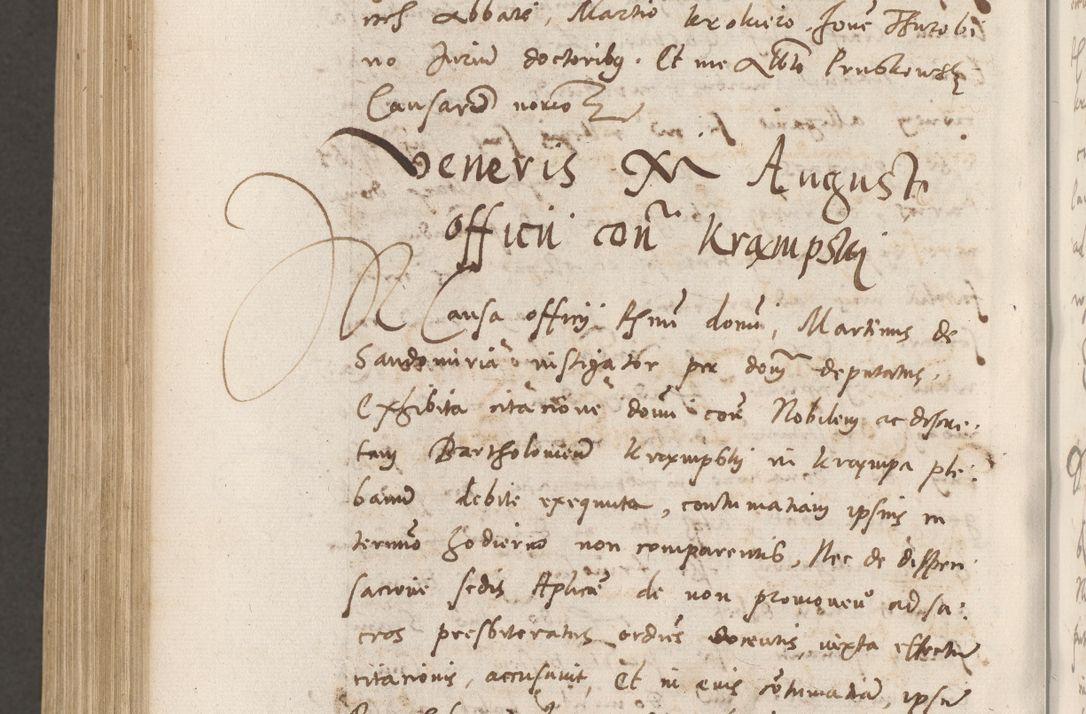 Abbate, Martio Krokier Jone Thurobi
no Juriu doctoribq. Et me Albto Pruskowsky
Causaru norio
Veneris XII Augusti
officii con Kraxmpskj
Causa officij Rsmi domi, Martinus de
Sandomiria instigator per dom deputatus,
Exhibita citacione domi con Nobilem ac discre:
tam Bartholomeu Kraxmpskj in Kraxmpa ple:
banu debite exequuta, contumatiam ipsius in
termino hodierno non comparentis, Nec de dispen
sacione sedis Aplice de non promoven ad sa:
cros presbiteratus ordies docentis, iuxta effectu
citacionis, accusavit, Et in eius cotumatia, ipsu